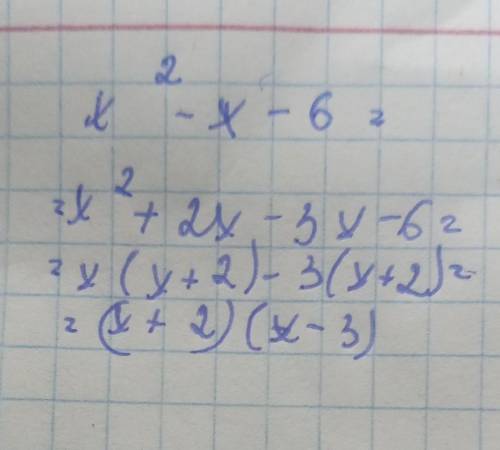 x² - x - 6 =
= x² + 2x - 3x - 6 =
= x (x + 2) - 3 (x + 2) =
= (x + 2) (x - 3)